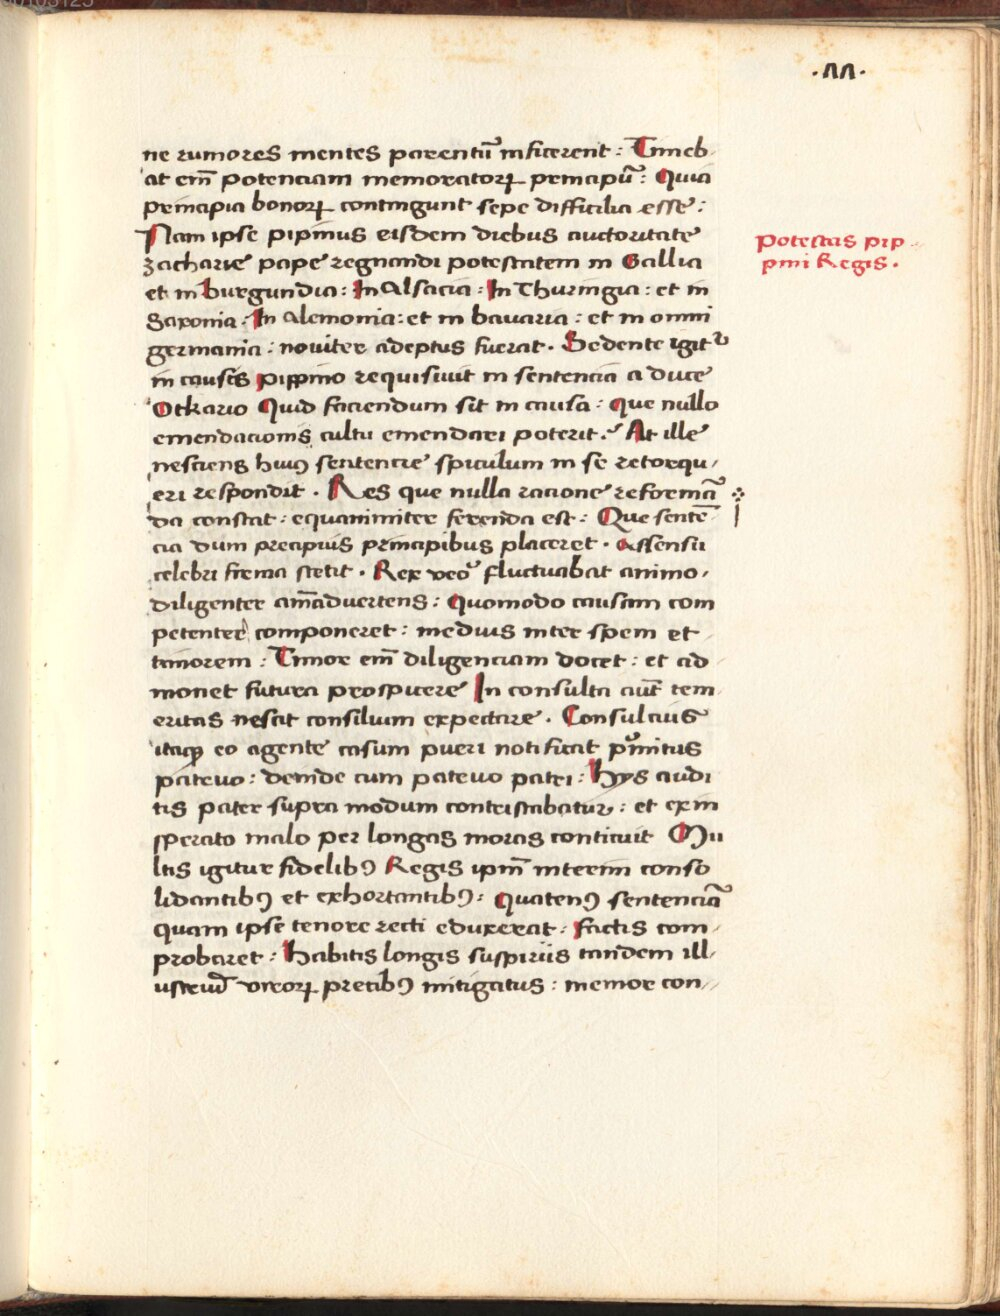 ·22·
ne rumores mentes parentū inficerent : Timeb-
at em̄ potenciam memoratorꝝ principū : Quia
principia bonorꝝ contingunt sepe difficilia esse :
Nam ipse pipinus eisdem diebus auctoritate
zacharie pape regnandi potestatem in Gallia
et in burgundia : In Alsacia : In Thuringia : et in
Saxonia . In Alemonia : et in bavaria : et in omni
germania : noviter adeptus fuerat . Sedente igitᷣ
in causis pippino requisivit in sentencia a duce
Otkario Quid faciendum sit in causa : Que nullo
emendacionis cultu emendari poterit . At ille
nesciens huiꝯ sentencie spiculum in se retorqu-
eri respondit . Res que nulla racione reformā
da constat : equanimiter ferenda est : Que sentē
cia dum precipuis principibus placeret . Assensu
celebri firma stetit . Rex veo᷑ fluctuabat animo .
diligenter aīadvertens : Quomodo causam com
petenter componeret : medius inter spem et
timorem : Timor em̄ diligenciam docet : et ad
monet futura prospicere In consulta aut̄ tem
eritas nescit consilium expectare . Consulcius
itaqꝫ eo agente casum pueri notificat pͥmitus
patruo : deinde cum patruo patri : Hys audi
tis pater supra modum contristabatur : et ex in
sperato malo per longas moras conticuit Mu
ltis igitur fidelibꝯ Regis ipm̄ interim conso
lidantibꝯ et exhortantibꝯ : Quatenꝯ sentenciā
quam ipse tenore recti eduxerat : factis com-
probaret : Habitis longis suspiriis tandem ill-
ustriū virorꝝ precibꝯ mitigatus : memor con-
potestas pip-
pini Regis .